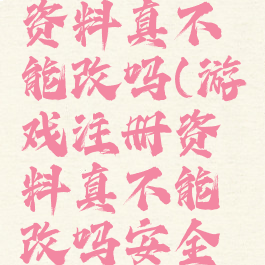 资料真不
能改吗(游
戏注册资
料真不能
改吗安全